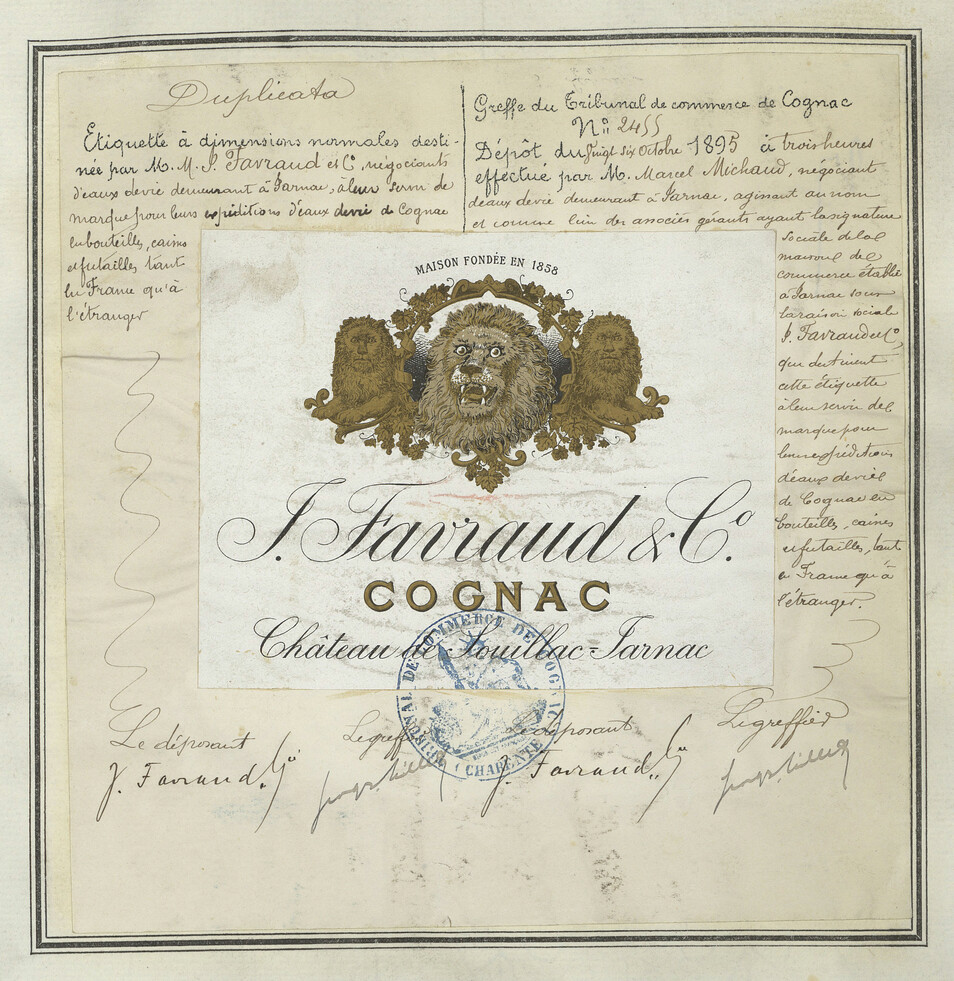 Duplicata
Etiquette à dimensions normales desti-
née par M. M. J. Favraud et Cº, négociants
d'eaux de vie demeurant à Jarnac, à leur servir de
marque pour leurs expéditions d'eaux de vie de Cognac
en bouteilles, caisses
et futailles tant
en France qu'à
l'étranger
Greffe du Tribunal de commerce de Cognac
Nº 2455
Dépôt du vingt six Octobre 1895 à trois heures
effectué par M. Marcel Michaud, négociant
d'eaux de vie demeurant à Jarnac, agissant au nom
et comme l'un des associés gérants ayant la signature
sociale de la
maison de
commerce établie
à Jarnac sous
la raison sociale
J. Favraud et Cº,
qui destinent
cette étiquette
à leur servir de
marque pour
leurs expéditions
d'eaux de vie
de Cognac en
bouteilles, caisses
et futailles, tant
en France qu'à
l'étranger.
MAISON FONDÉE EN 1858
J. Favraud & Cº.
COGNAC
Château de Souillac=Jarnac
TRIBUNAL DE COMMERCE DE COGNAC
(CHARENTE)
Le déposant Le greffier Le déposant Le greffier
J. Favraud & Cie J. Favraud & Cie